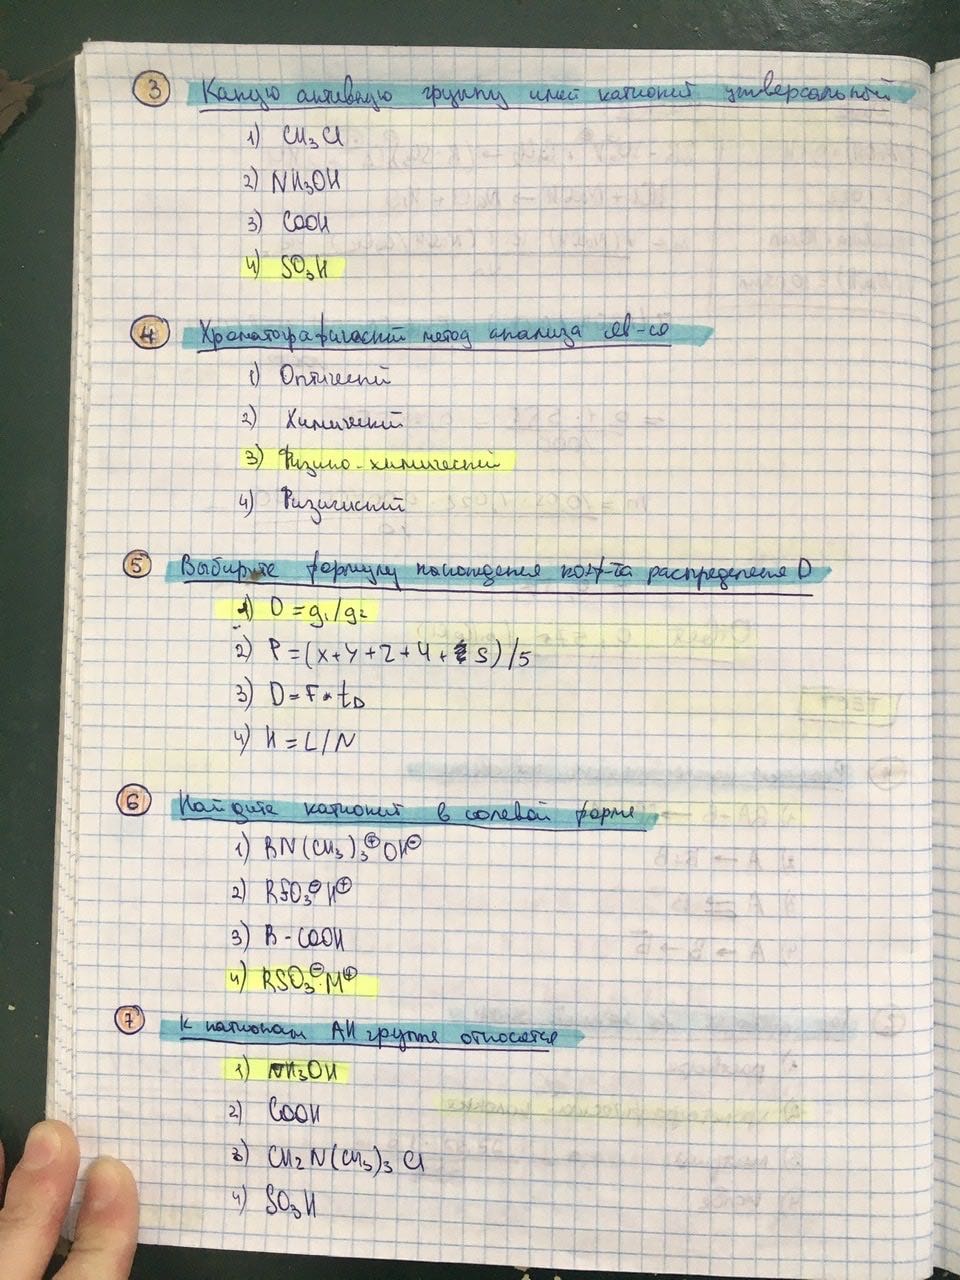 3 Какую активную группу имел катионит универсальный
1) CH3Cl
2) NH3OH
3) COOH
4) SO3H
4 Хроматографический метод анализа яв-ся
1) Оптический
2) Химический
3) Физико-химический
4) Физический
5 Выбирите формулу нахождения коэф-та распределения D
1) D = g1/g2
2) P = (x+y+z+4+ S)/5
3) D = F * tD
4) H = L/N
6 Найдите катионит в солевой форме
1) RN(CH3)3⊕OH⊖
2) RSO3⊖H⊕
3) R-COOH
4) RSO3⊖·M⊕
7 К катионам АИ группе относятся
1) NH3OH
2) COOH
3) CH2N(CH3)3Cl
4) SO3H